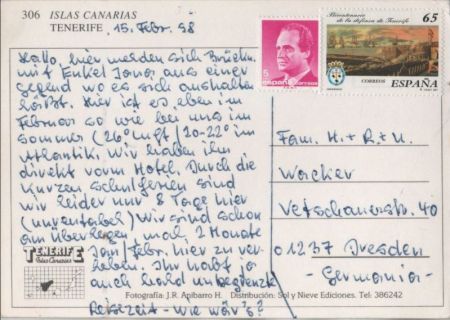 306 ISLAS CANARIAS
TENERIFE
15. Febr. 98
Hallo, hier melden sich
mit Enkel Jonas aus einer
Gegend wo es sich aushalten
läßt. Hier ist es eben im
Februar so wie bei uns im
Sommer (26° Luft / 20-22° im
Atlantik. Wir haben ihn
direkt vorm Hotel. Durch die
kurzen Schulferien sind
wir leider nur 8 Tage hier
Wir sind schon
am überlegen, mal 2 Monate
Jan/Febr. hier zu ver-
leben. Ihr habt ja
auch bald unbegrenzt
Reisezeit - wie wär's?
5
ESPAÑA
correos
Bicentenario
de la defensa de Tenerife
65
CORREOS
ESPAÑA
Fam. H. + R. + U.
Wacker
Vetschauerstr. 40
01237 Dresden
- Germania -
TENERIFE
Islas Canarias
Fotografía: J.R. Apibarro H. Distribución: Sol y Nieve Ediciones. Tel: 386242